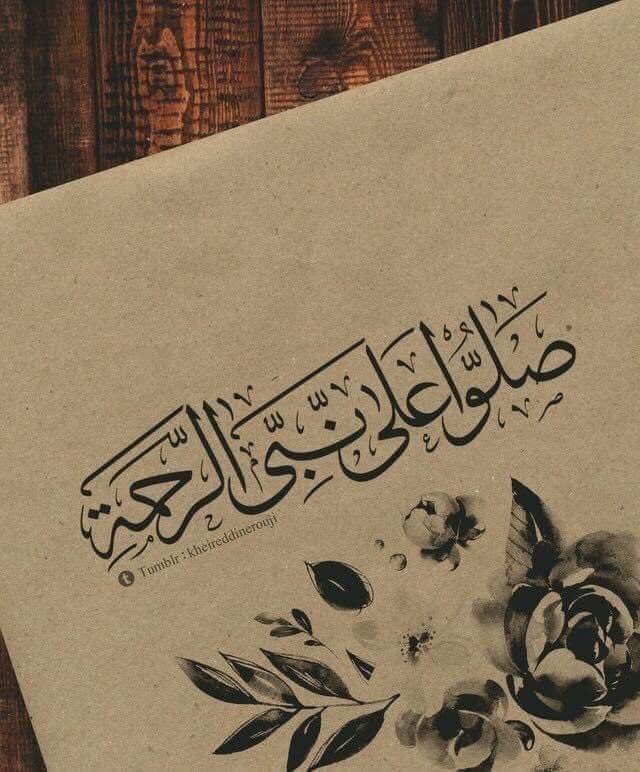 صَلُّوا عَلَى نَبِّيِّ الرَّحْمَةِ
Tumblr : kheireddinerouji